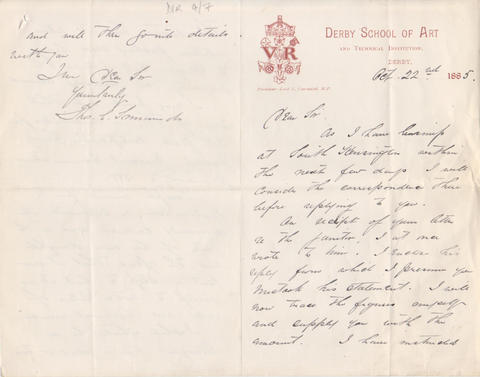 DERBY SCHOOL OF ART
AND TECHNICAL INSTITUTION,
DERBY,
V R
President—Lord E. Cavendish, M.P.
Oct. 22nd 1885.
Dear Sir
As I have business
at South Kensington within
the next few days I will
consider the correspondence there
before replying to you.
On receipt of your letter
re the janitor I at once
wrote to him. I enclose his
reply from which I presume you
mistook his statement. I will
now trace the figures myself
and supply you with the
amount. I have instructed
NR 9/7
and will then go into details
with you
I am Dear Sir
Yours truly
Thos. C. Simmonds